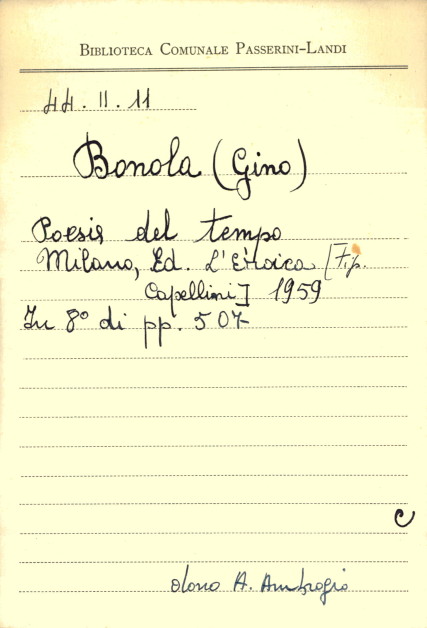 BIBLIOTECA COMUNALE PASSERINI-LANDI
44. II. 11
Bonola (Gino)
Poesie del tempo
Milano, Ed. L'Eroica [Tip.
Capellini] 1959
In 8° di pp. 507
C
dono A. Ambrogio